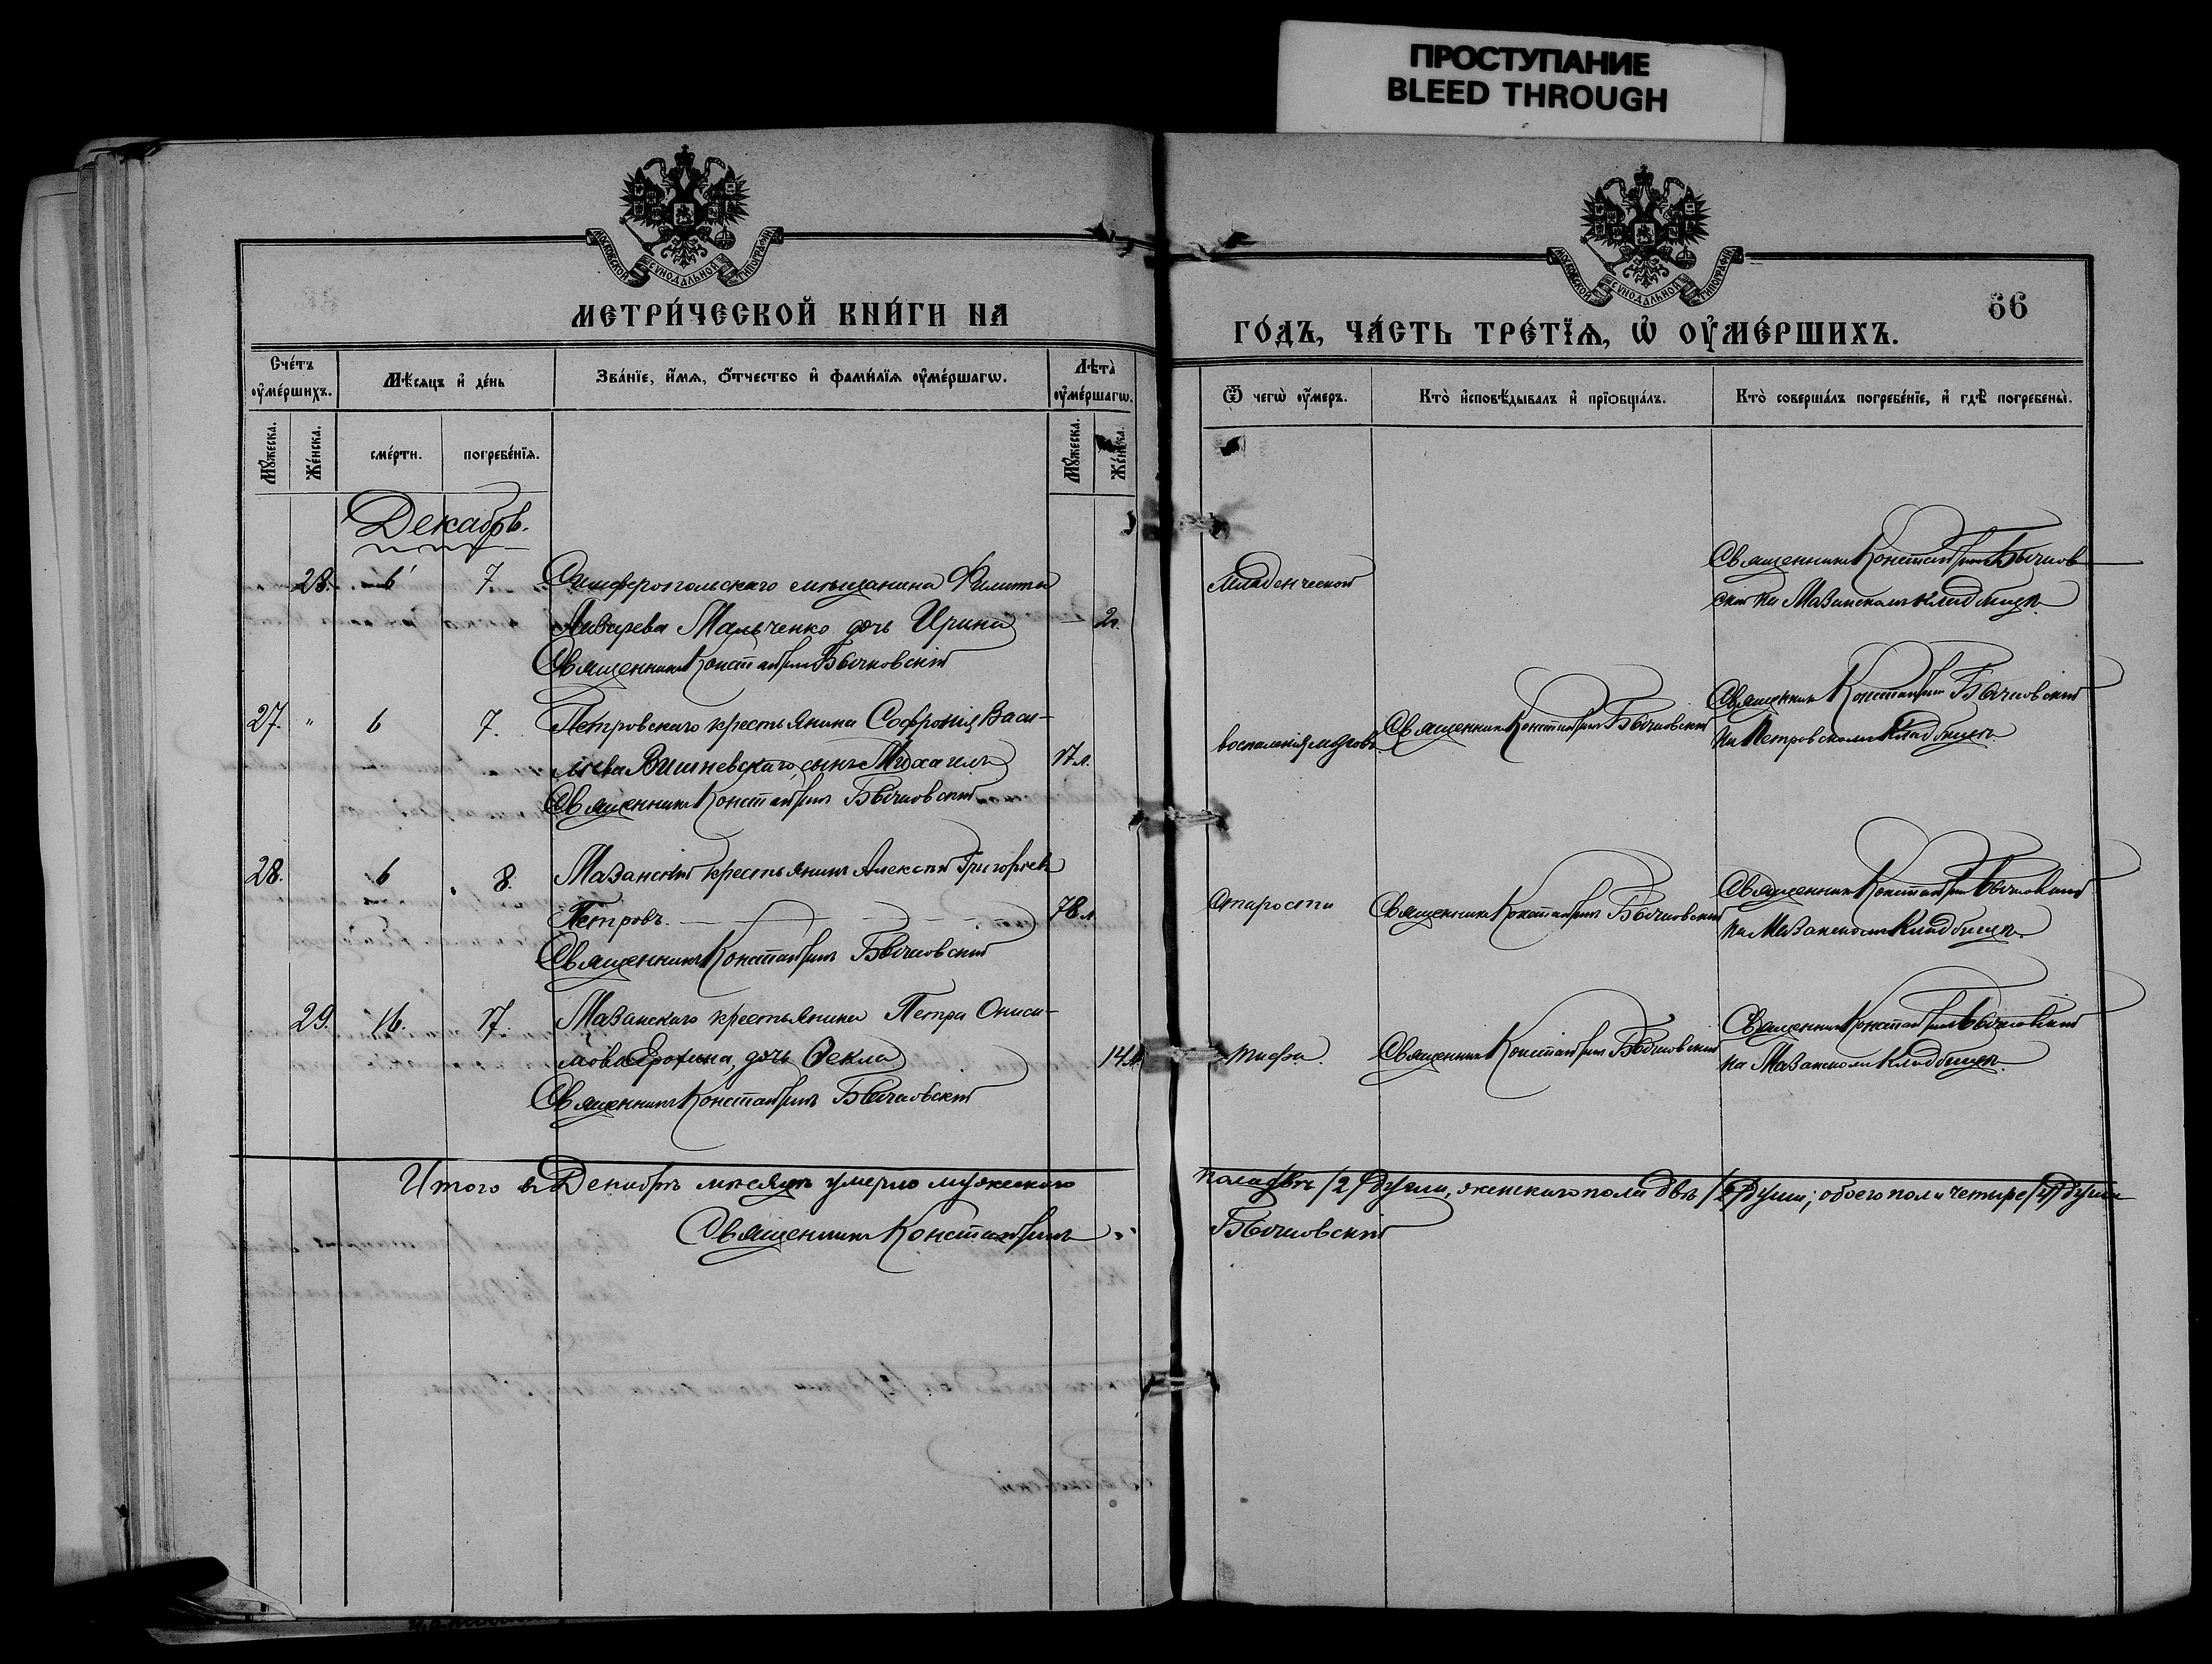 ПРОСТУПАНИЕ
BLEED THROUGH
МОСКОВСКОЙ СУНОДАЛЬНОЙ ТИПОГРАФІИ
МОСКОВСКОЙ СУНОДАЛЬНОЙ ТИПОГРАФІИ
МЕТРИ́ЧЕСКОЙ КНИ́ГИ НА
ГО́ДЪ, ЧА́СТЬ ТРЕ́ТЇѦ, Ѡ҆ ОУ҆МЕ́РШИХЪ.
66
Сче́тъ оу҆ме́ршихъ.
Мѣ́сѧцъ и҆ де́нь
Зва́нїе, и҆́мѧ, ѻ҆́тчество и҆ фами́лїѧ оу҆ме́ршагѡ.
Лѣта̀ оу҆ме́ршагѡ.
Ѿ чегѡ̀ оу҆́меръ.
Кто̀ и҆сповѣ́дывалъ и҆ прїѻбща́лъ.
Кто̀ соверша́лъ погребе́нїе, и҆ гдѣ̀ погребены̀.
Мꙋ́жеска.
Же́нска.
сме́рти.
погребе́нїѧ.
Мꙋ́жеска.
Же́нска.
Декабрь.
28. 6 7 Симферопольскаго мѣщанина Филиппа
Азарева Мальченко дочь Ирина 2г.
Священникъ Константинъ Бычковскій
Младенческой
Священникъ Константинъ Бычков
скій на Мазанскомъ кладбищѣ.
27. " 6 7. Петровскаго крестьянина Софронія Васи-
льева Вишневскаго, сынъ Михаилъ 17 л.
Священникъ Константинъ Бычковскій
воспаленія мозговъ
Священникъ Константинъ Бычковскій
Священникъ Константинъ Бычковскій
на Петровскомъ кладбищѣ.
28. 6 8. Мазанскій крестьянинъ Алексѣй Григорьевъ
Петровъ. 78 л.
Священникъ Константинъ Бычковскій
Старости
Священникъ Константинъ Бычковскій
Священникъ Константинъ Бычковскій
на Мазанскомъ кладбищѣ.
29. 16. 17. Мазанскаго крестьянина Петра Ониси-
мова Ерохина, дочь Ѳекла 14 л.
Священникъ Константинъ Бычковскій
Тифа.
Священникъ Константинъ Бычковскій
Священникъ Константинъ Бычковскій
на Мазанскомъ кладбищѣ.
Итого въ Декабрѣ мѣсяцѣ умерло мужескаго
пола двѣ /2/ души, женскаго пола двѣ /2/ души; обоего пола четыре /4/ души
Священникъ Константинъ
Бычковскій